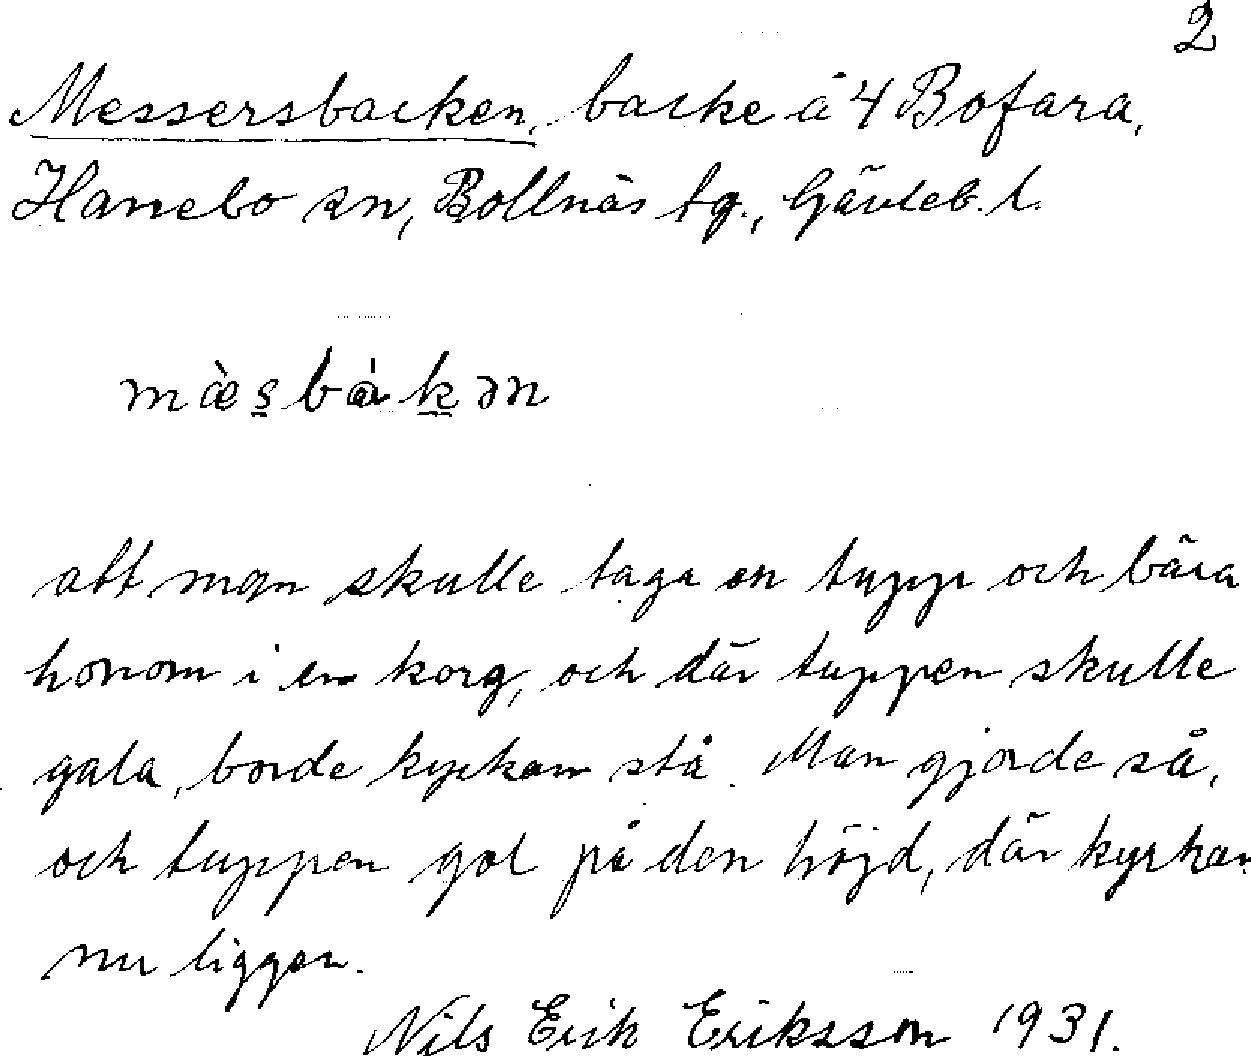 2
Messersbacken, backe å 4 Bofara,
Hanebo sn, Bollnäs tg., Gävleb. l.
mæ̀s̱bàḵən
att man skulle taga en tupp och bära
honom i en korg, och där tuppen skulle
gala, borde kyrkan stå. Man gjorde så,
och tuppen gol på den höjd, där kyrkan
nu ligger.
Nils Erik Eriksson 1931.